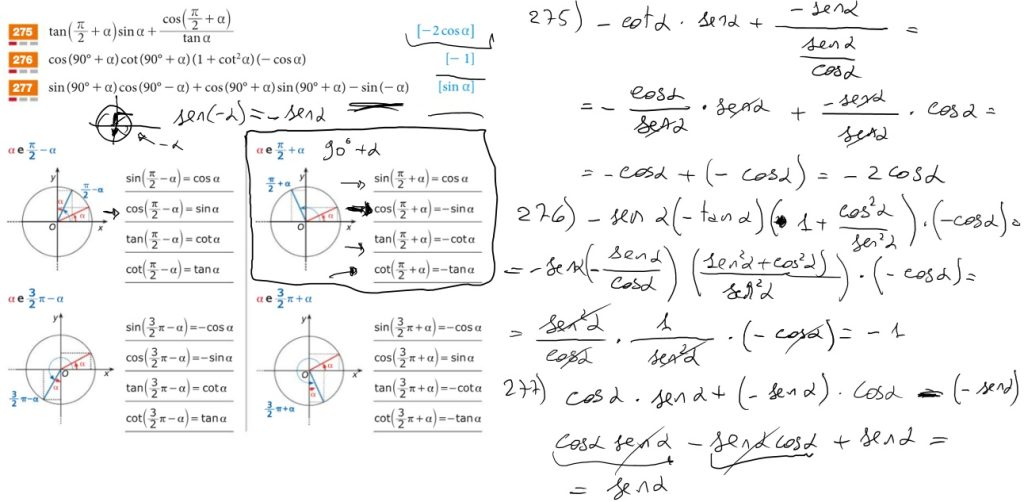 275 tan(π/2 + α) sin α + cos(π/2 + α)/tan α [−2 cos α]
276 cos(90° + α) cot(90° + α)(1 + cot²α)(−cos α) [−1]
277 sin(90° + α) cos(90° − α) + cos(90° + α) sin(90° + α) − sin(−α) [sin α]
sen(-α) = - senα
-α
α e π/2 − α
y
π/2 − α
α
α
O
x
sin(π/2 − α) = cos α
cos(π/2 − α) = sin α
tan(π/2 − α) = cot α
cot(π/2 − α) = tan α
α e π/2 + α
90° + α
y
π/2 + α
α
α
O
x
sin(π/2 + α) = cos α
cos(π/2 + α) = −sin α
tan(π/2 + α) = −cot α
cot(π/2 + α) = −tan α
α e 3/2 π − α
y
α
O
x
α
3/2 π − α
sin(3/2 π − α) = −cos α
cos(3/2 π − α) = −sin α
tan(3/2 π − α) = cot α
cot(3/2 π − α) = tan α
α e 3/2 π + α
y
α
O
x
α
3/2 π + α
sin(3/2 π + α) = −cos α
cos(3/2 π + α) = sin α
tan(3/2 π + α) = −cot α
cot(3/2 π + α) = −tan α
275) - cotα · senα + -senα/(senα/cosα) =
= - cosα/senα · senα + -senα/senα · cosα =
= - cosα + (- cosα) = - 2 cosα
276) - sen α (- tan α) (1 + cos²α/sen²α) · (-cosα) =
= - senα (- senα/cosα) ((sen²α + cos²α)/sen²α) · (- cosα) =
= sen²α/cosα · 1/sen²α · (- cosα) = - 1
277) cosα · senα + (- senα) · cosα - (- senα)
cosα senα - senα cosα + senα =
= senα